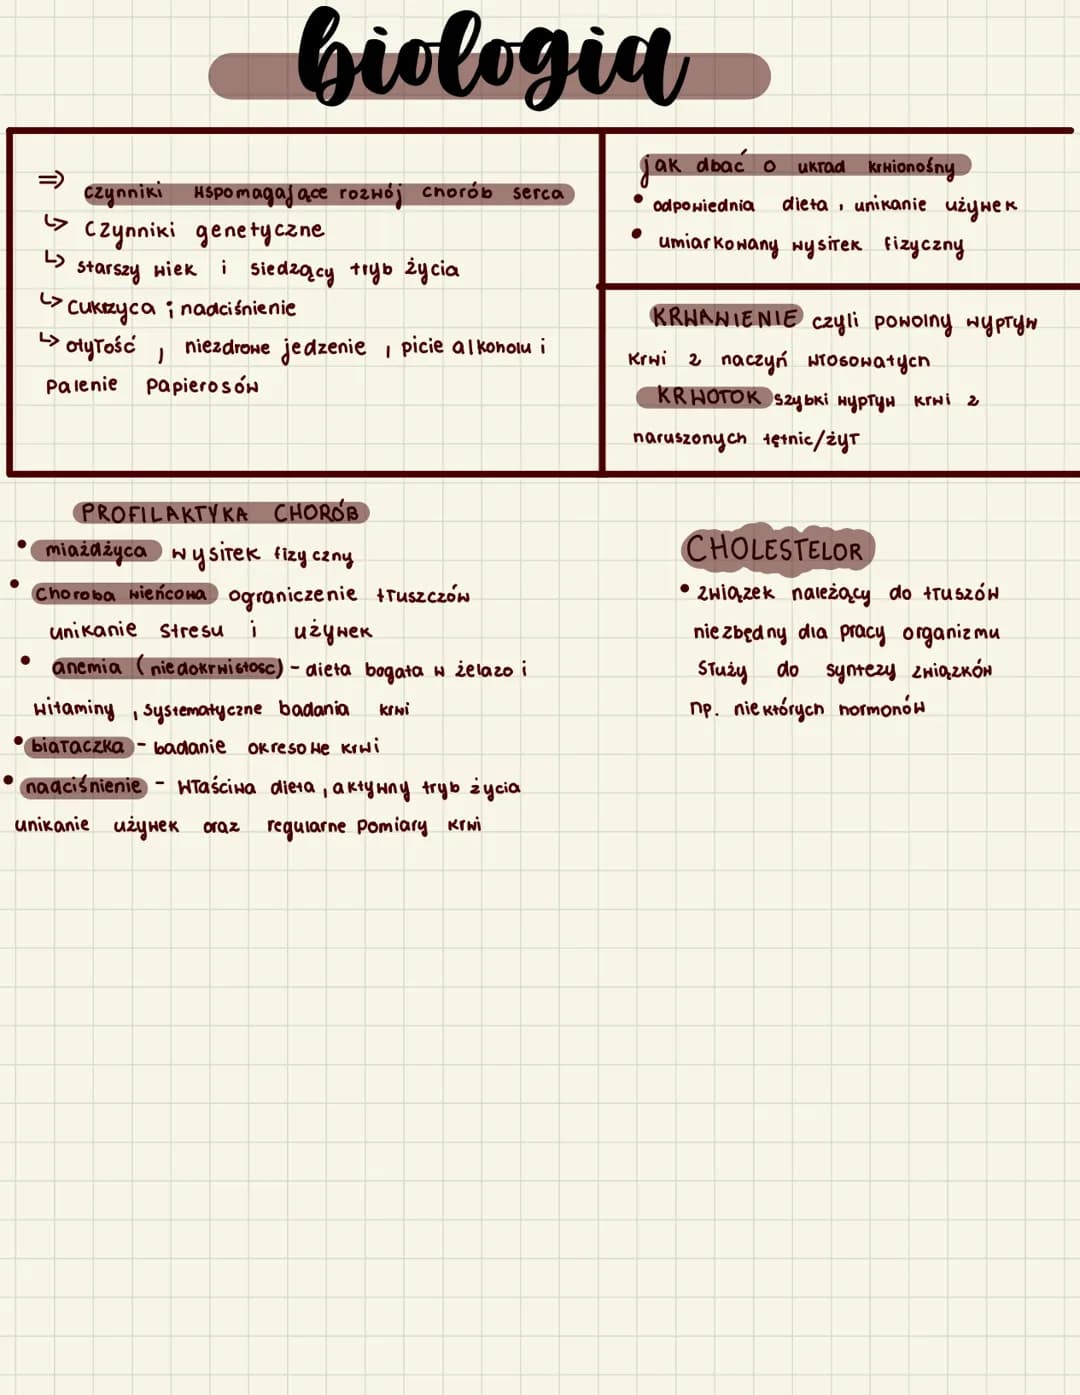 biologia
⇒ czynniki wspomagające rozwój chorób serca
↳ Czynniki genetyczne
↳ starszy wiek i siedzący tryb życia
↳ Cukrzyca i nadciśnienie
↳ otyłość, niezdrowe jedzenie, picie alkoholu i
palenie papierosów
jak dbać o układ krwionośny
• odpowiednia dieta, unikanie używek
• umiarkowany wysiłek fizyczny
KRWAWIENIE czyli powolny wypływ
krwi z naczyń włosowatych
KRWOTOK szybki wypływ krwi z
naruszonych tętnic/żył
PROFILAKTYKA CHORÓB
• miażdżyca wysiłek fizyczny
• Choroba wieńcowa ograniczenie tłuszczów
unikanie stresu i używek
• anemia (niedokrwistosc) - dieta bogata w żelazo i
witaminy, systematyczne badania krwi
• białaczka - badanie okresowe krwi
• nadciśnienie - właściwa dieta, aktywny tryb życia
unikanie używek oraz regularne pomiary krwi
CHOLESTELOR
• związek należący do tłuszów
niezbędny dla pracy organizmu
Służy do syntezy związków
np. niektórych hormonów